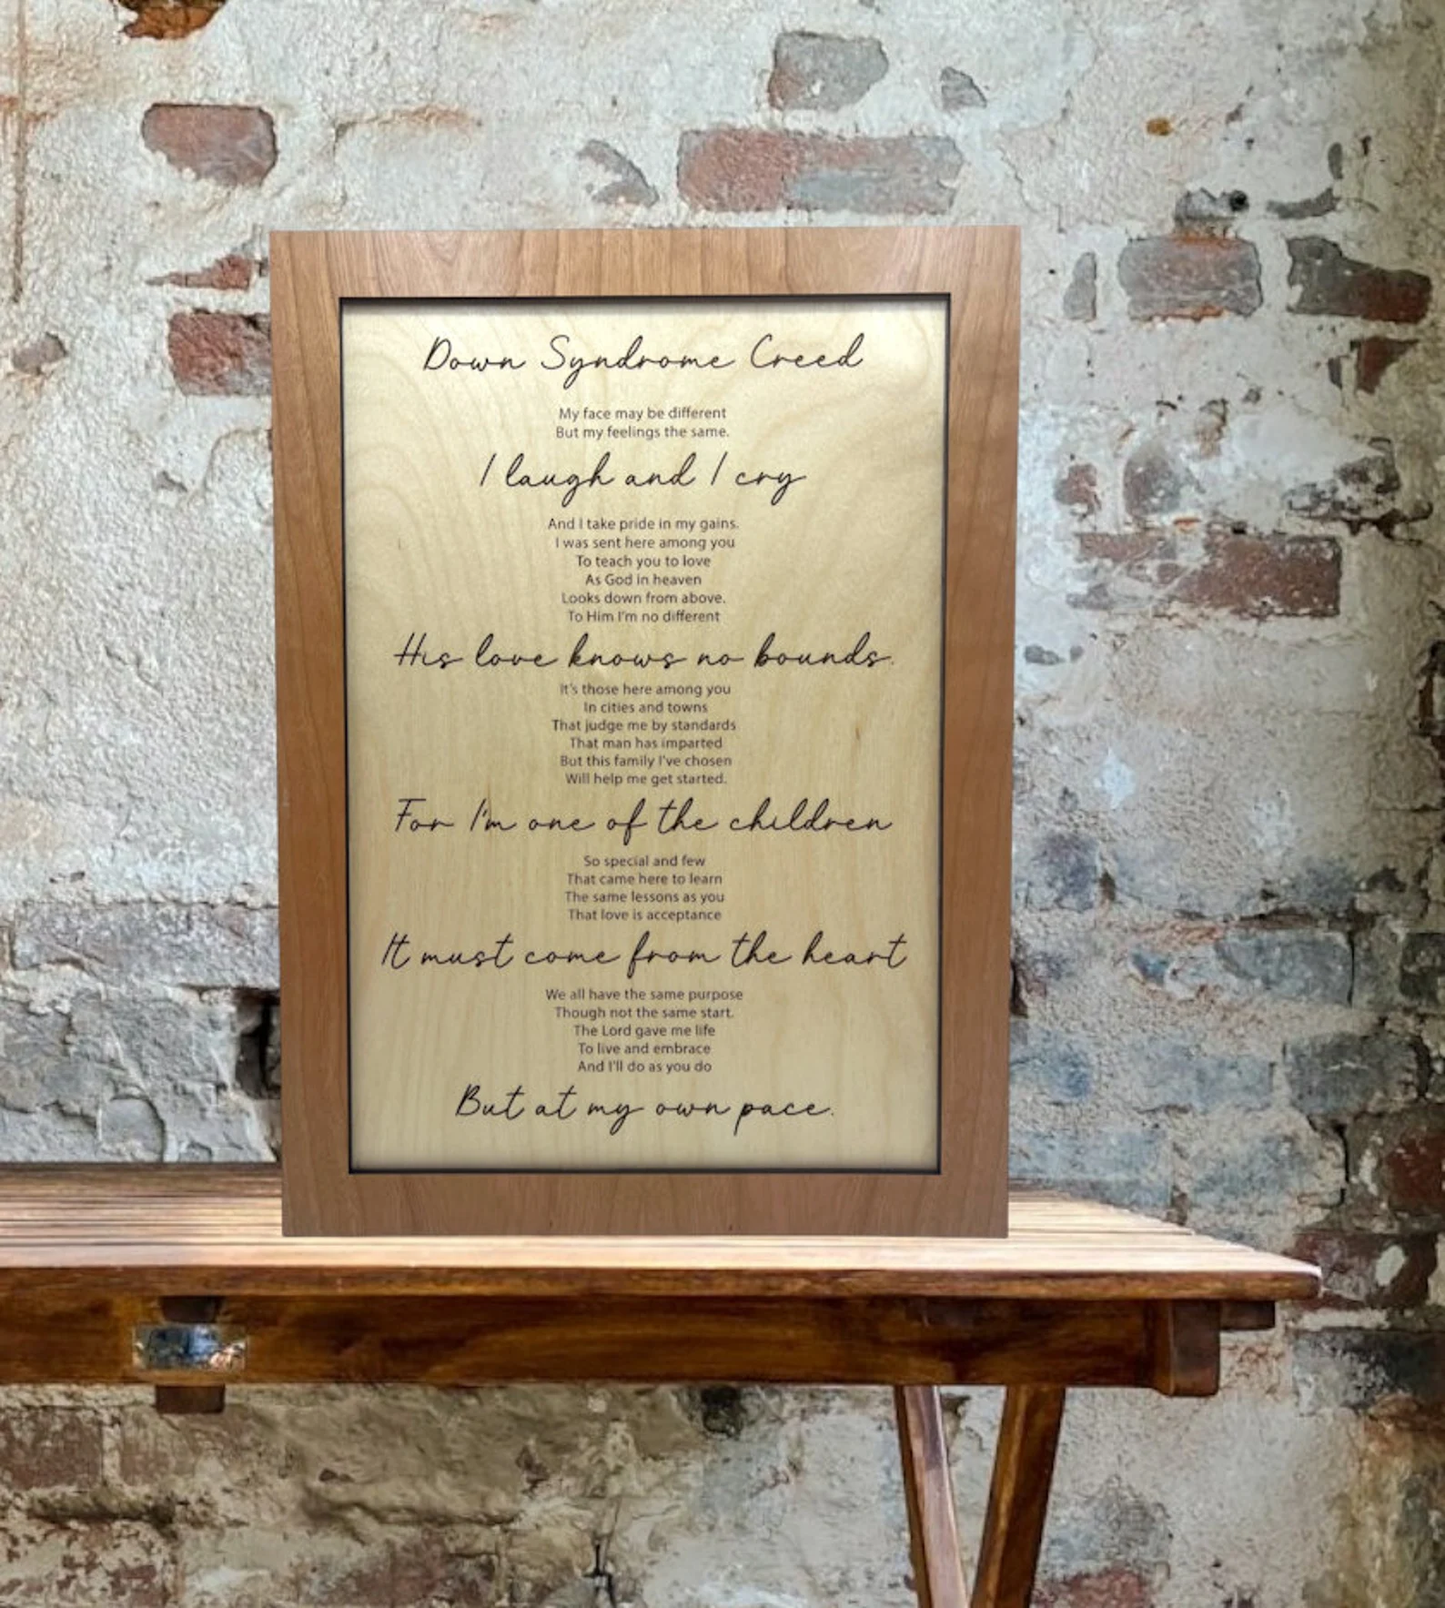 Down Syndrome Creed
My face may be different
But my feelings the same.
I laugh and I cry
And I take pride in my gains.
I was sent here among you
To teach you to love
As God in heaven
Looks down from above.
To Him I'm no different
His love knows no bounds.
It's those here among you
In cities and towns
That judge me by standards
That man has imparted
But this family I've chosen
Will help me get started.
For I'm one of the children
So special and few
That came here to learn
The same lessons as you
That love is acceptance
It must come from the heart
We all have the same purpose
Though not the same start.
The Lord gave me life
To live and embrace
And I'll do as you do
But at my own pace.